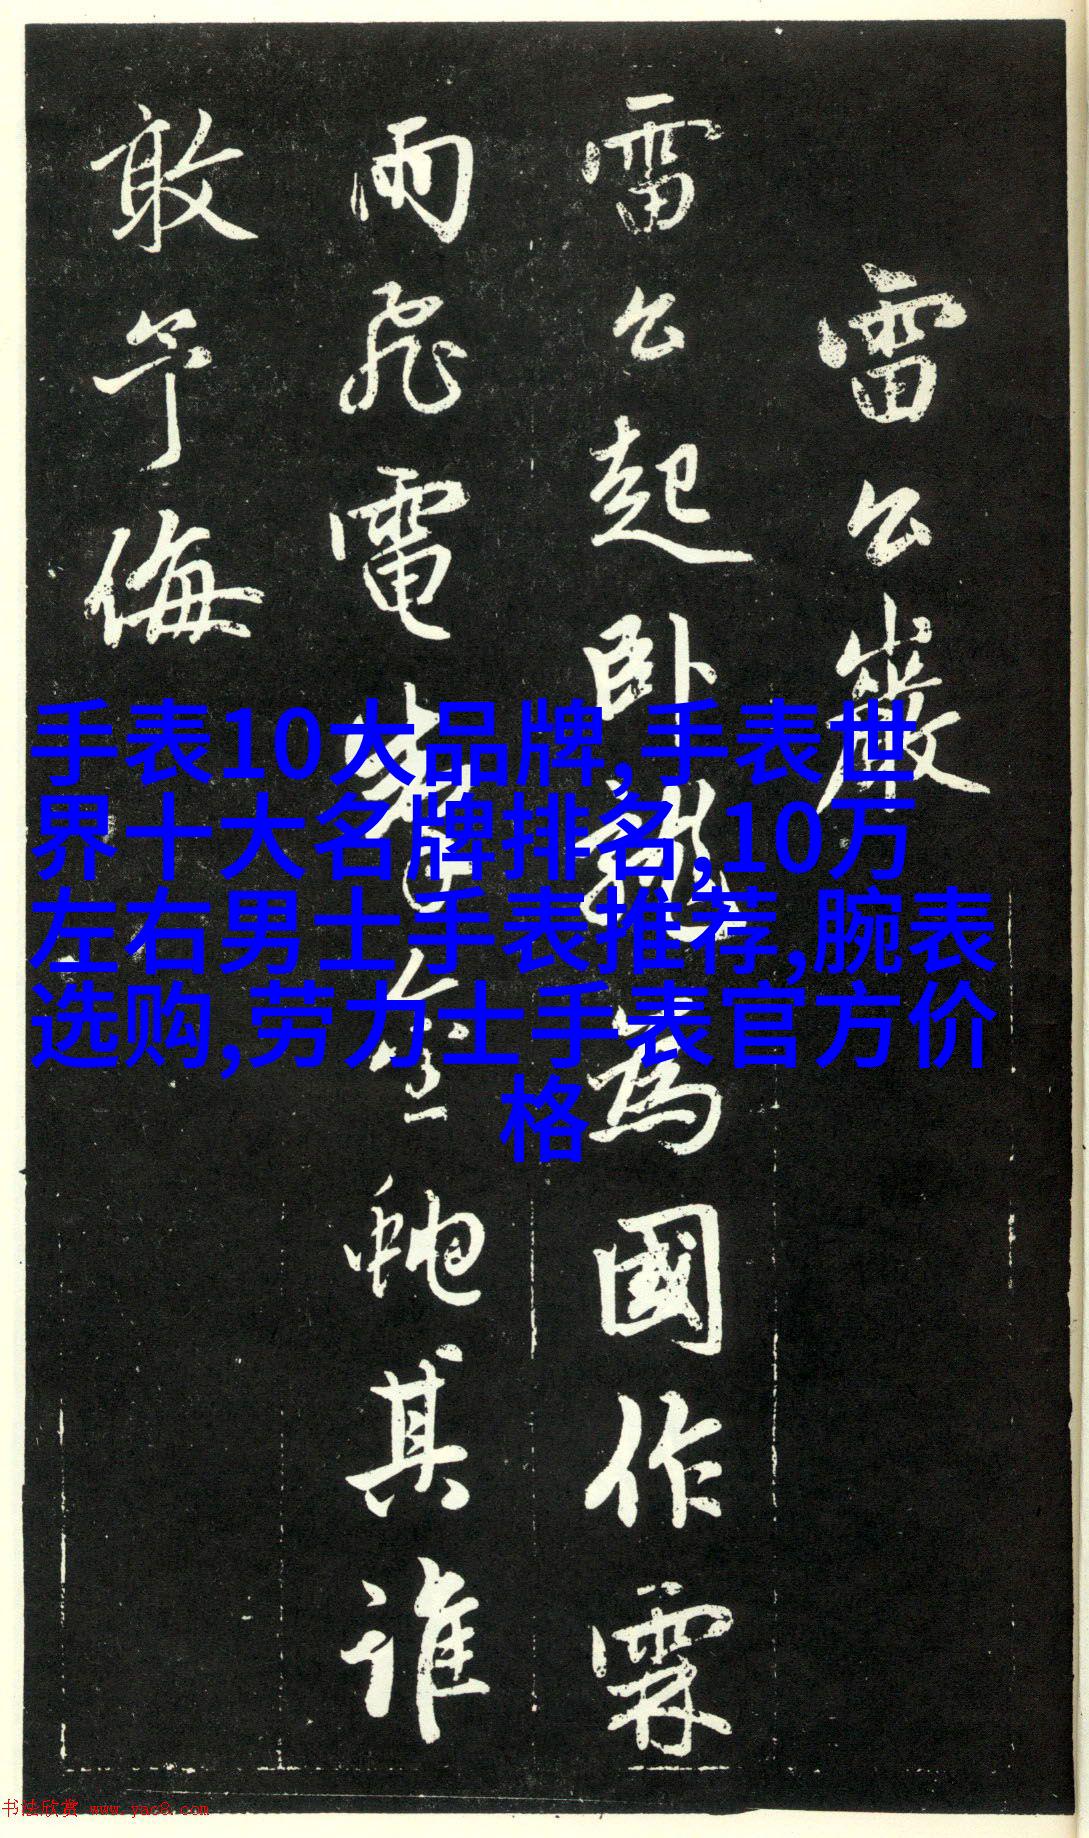 雷公巖
雷公起卧龍為國作霖
雨飛電掣金虵其誰
敢予侮
手表10大品牌,手表世
界十大名牌排名,10万
左右男士手表推荐,腕表
选购,劳力士手表官方价
格
书法欣赏 www.yac8.com